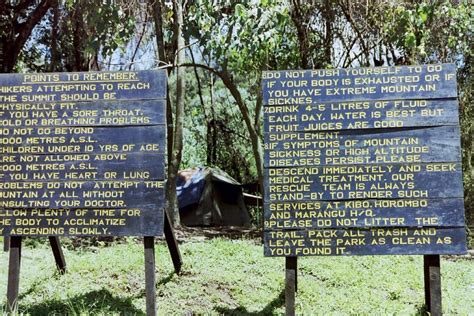 POINTS TO REMEMBER.
HIKERS ATTEMPTING TO REACH
THE SUMMIT SHOULD BE
PHYSICALLY FIT.
IF YOU HAVE A SORE THROAT,
COLD OR BREATHING PROBLEMS
DO NOT GO BEYOND
000 METRES A.S.L.
CHILDREN UNDER 10 YRS OF AGE
ARE NOT ALLOWED ABOVE
000 METRES A.S.L.
IF YOU HAVE HEART OR LUNG
PROBLEMS DO NOT ATTEMPT THE
MOUNTAIN AT ALL WITHOUT
CONSULTING YOUR DOCTOR.
ALLOW PLENTY OF TIME FOR
THE BODY TO ACCLIMATIZE
ASCENDING SLOWLY.
6.DO NOT PUSH YOURSELF TO GO
IF YOUR BODY IS EXHAUSTED OR IF
YOU HAVE EXTREME MOUNTAIN
SICKNES.
7.DRINK 4-5 LITRES OF FLUID
EACH DAY. WATER IS BEST BUT
FRUIT JUICES ARE A GOOD
SUPPLEMENT.
8.IF SYMPTOMS OF MOUNTAIN
SICKNESS OR HIGH ALTITUDE
DISEASES PERSIST, PLEASE
DESCEND IMMEDIATELY AND SEEK
MEDICAL TREATMENT. OUR
RESCUE TEAM IS ALWAYS
STAND-BY TO RENDER SUCH
SERVICES AT KIBO, HOROMBO
AND MARANGU H/Q.
9.PLEASE DO NOT LITTER THE
TRAIL, PACK ALL TRASH AND
LEAVE THE PARK AS CLEAN AS
YOU FOUND IT.